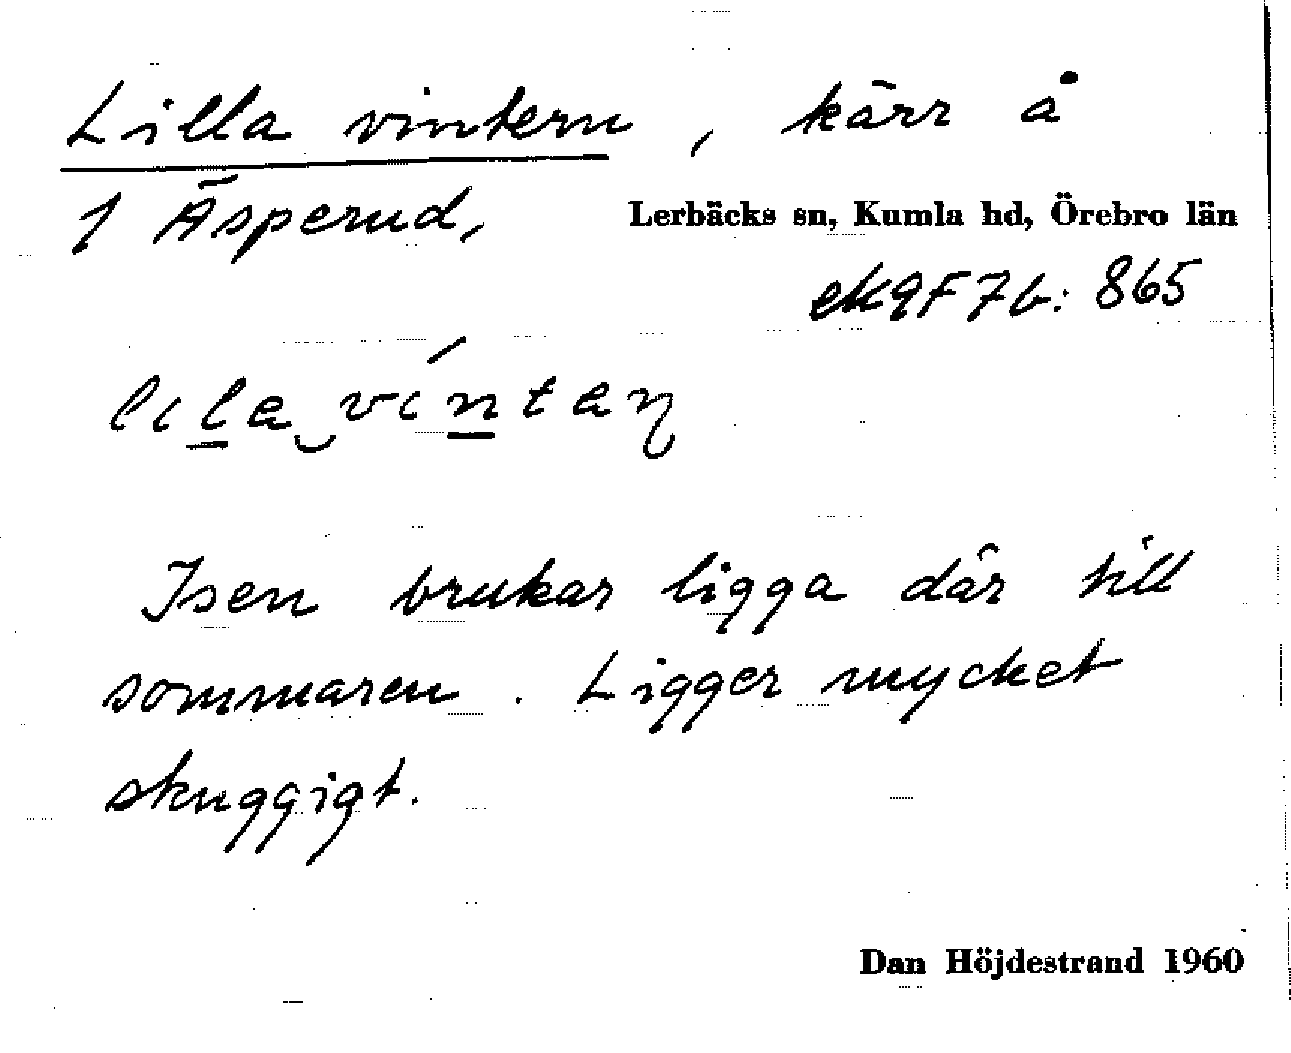 Lilla vintern, kärr å
1 Äsperud,
Lerbäcks sn, Kumla hd, Örebro län
ek9F7b: 865
lila víntaɳ
Isen brukar ligga där till
sommaren. Ligger mycket
skuggigt.
Dan Höjdestrand 1960